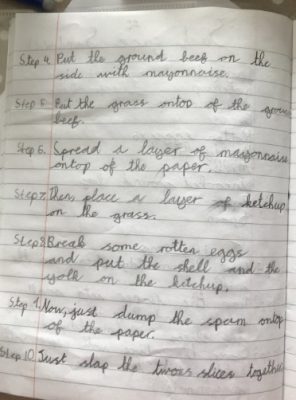 Step 4. Put the ground beef on the
side with mayonnaise.
Step 5. Put the grass ontop of the
beef.
Step 6. Spread a layer of mayonnaise
ontop of the paper.
Step 7. Then, place a layer of ketchup
on the grass.
Step 8. Break some rotten eggs
and put the shell and the
yolk on the ketchup.
Step 9. Now, just dump the spam ontop
of the paper.
Step 10. Just slap the slices together